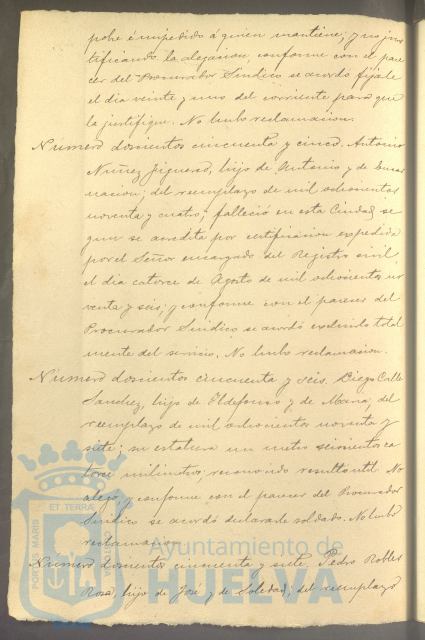 pobre é impedido á quien mantiene; y no jus
tificando la alegacion, conforme con el pare
cer del Procurador Sindico se acordó fijarle
el dia veinte y uno del corriente para que
la justifique. No hubo reclamacion.
Numero doscientos cincuenta y cinco. Antonio
Nuñez Figueroa, hijo de Antonio y de Encar
nacion; del reemplazo de mil ochocientos
noventa y cuatro; falleció en esta Ciudad se
gun se acredita por certificacion expedida
por el Señor encargado del Registro civil
el dia catorce de Agosto de mil ochocientos no
venta y seis; y conforme con el parecer del
Procurador Sindico se acordó excluirlo total
mente del servicio. No hubo reclamacion.
Numero doscientos cincuenta y seis. Diego Calle
Sanchez, hijo de Ildefonso y de Maria, del
reemplazo de mil ochocientos noventa y
siete; su estatura un metro seiscientos ca
torce milimetros, reconocido resultó util. No
alegó, y conforme con el parecer del Procurador
Sindico se acordó declararle soldado. No hubo
reclamacion.
Numero doscientos cincuenta y siete. Pedro Robles
Rosa, hijo de José y de Soledad; del reemplazo
PORTUS MARIS
ET TERRAE
CUSTODIA
Ayuntamiento de
HUELVA